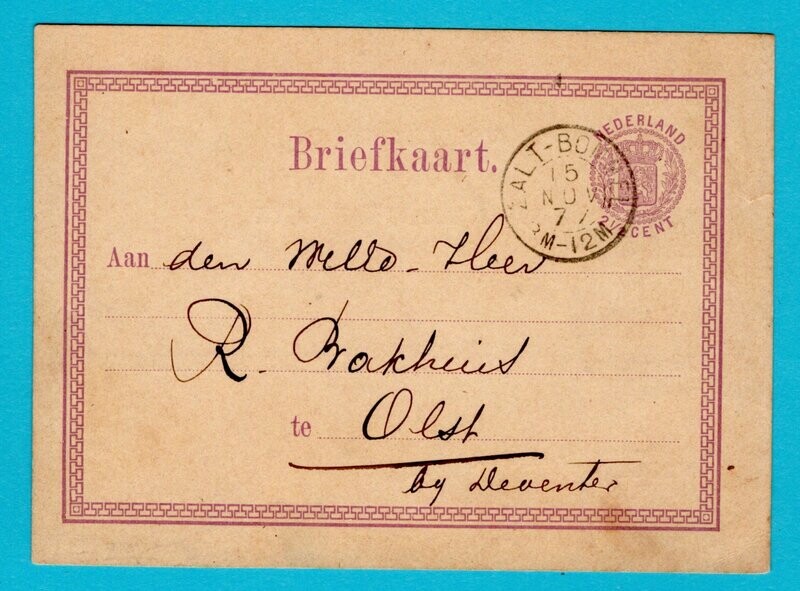 NEDERLAND
Briefkaart.
ZALT-BOMMEL
15
NOV
77
M-12M
2½ CENT
Aan den WelEd. Heer
R. Bakhuis
te Olst
by Deventer